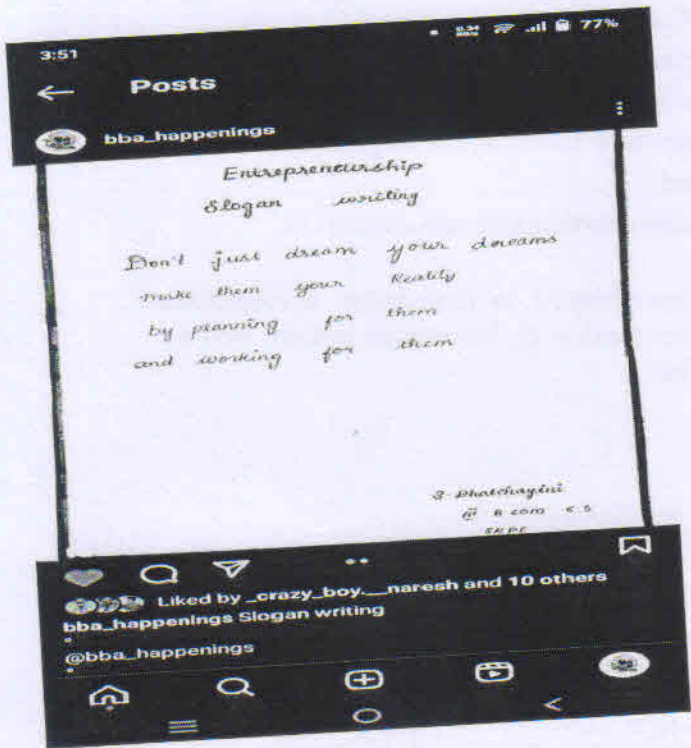 3:51 77%
Posts
bba_happenings
Entrepreneurship
Slogan writing
Don't just dream your dreams
make them your Reality
by planning for them
and working for them
S. Dhatchayini
B com C S
Liked by _crazy_boy.__naresh and 10 others
bba_happenings Slogan writing
@bba_happenings